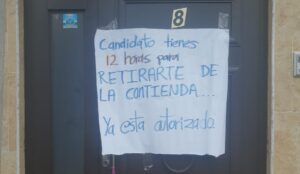 8
Candidato tienes
12 horas para
RETIRARTE DE
LA CONTIENDA...
Ya esta autorizado.